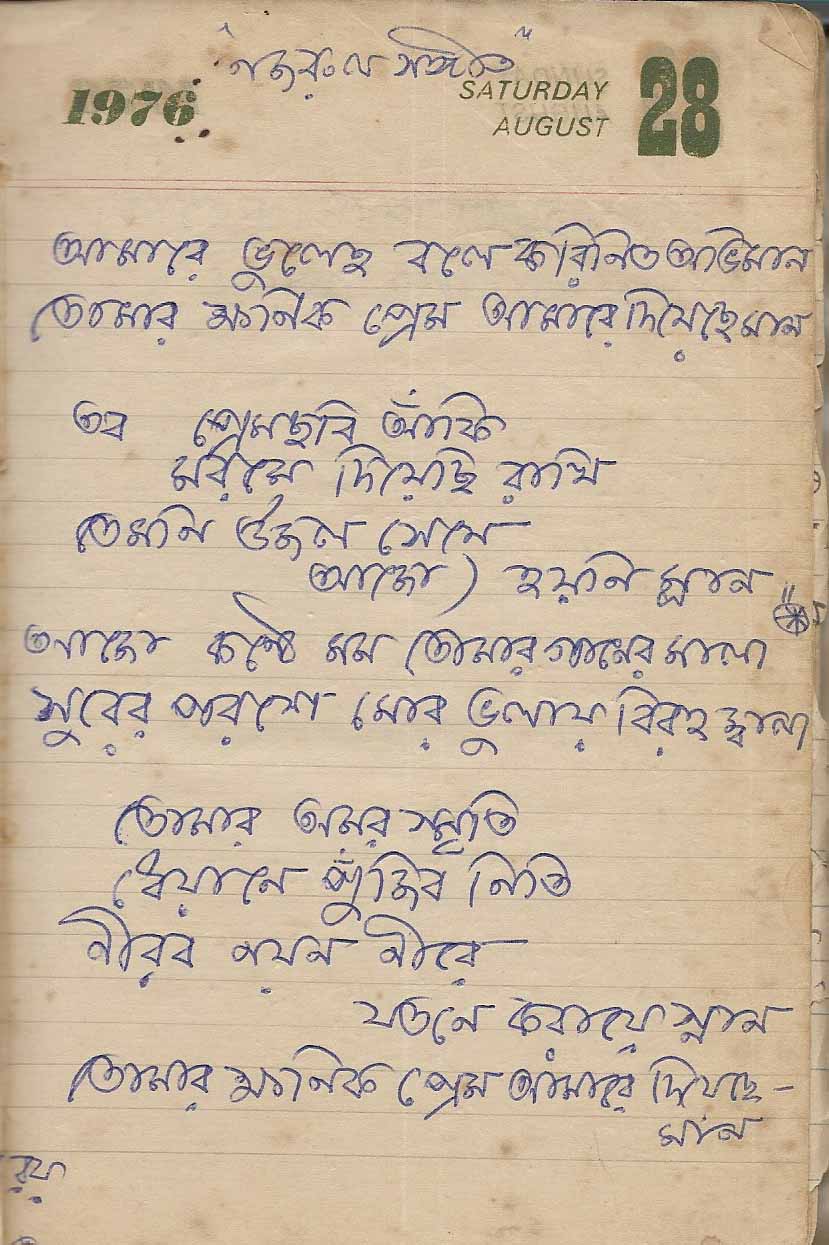 "নজরুল সঙ্গীত"
1976 SATURDAY AUGUST 28
আমারে ভুলেছ বলে করিনিত অভিমান
তোমার ক্ষনিক প্রেম আমারে দিয়েছে মান
তব প্রেমছবি আঁকি
মরমে দিয়েছি রাখি
তেমনি উজল সেযে
আজো) হয়নি ম্লান"
আজো কন্ঠে মম তোমার গানের মালা
সুরের পরশে মোর ভুলায় বিরহ জ্বালা
তোমার অমর স্মৃতি
ধেয়ানে পুঁজিব নিতি
নীরব নয়ন নীরে
যতনে করায়ে স্নান
তোমার ক্ষানিক প্রেম আমারে দিয়েছে -
মান